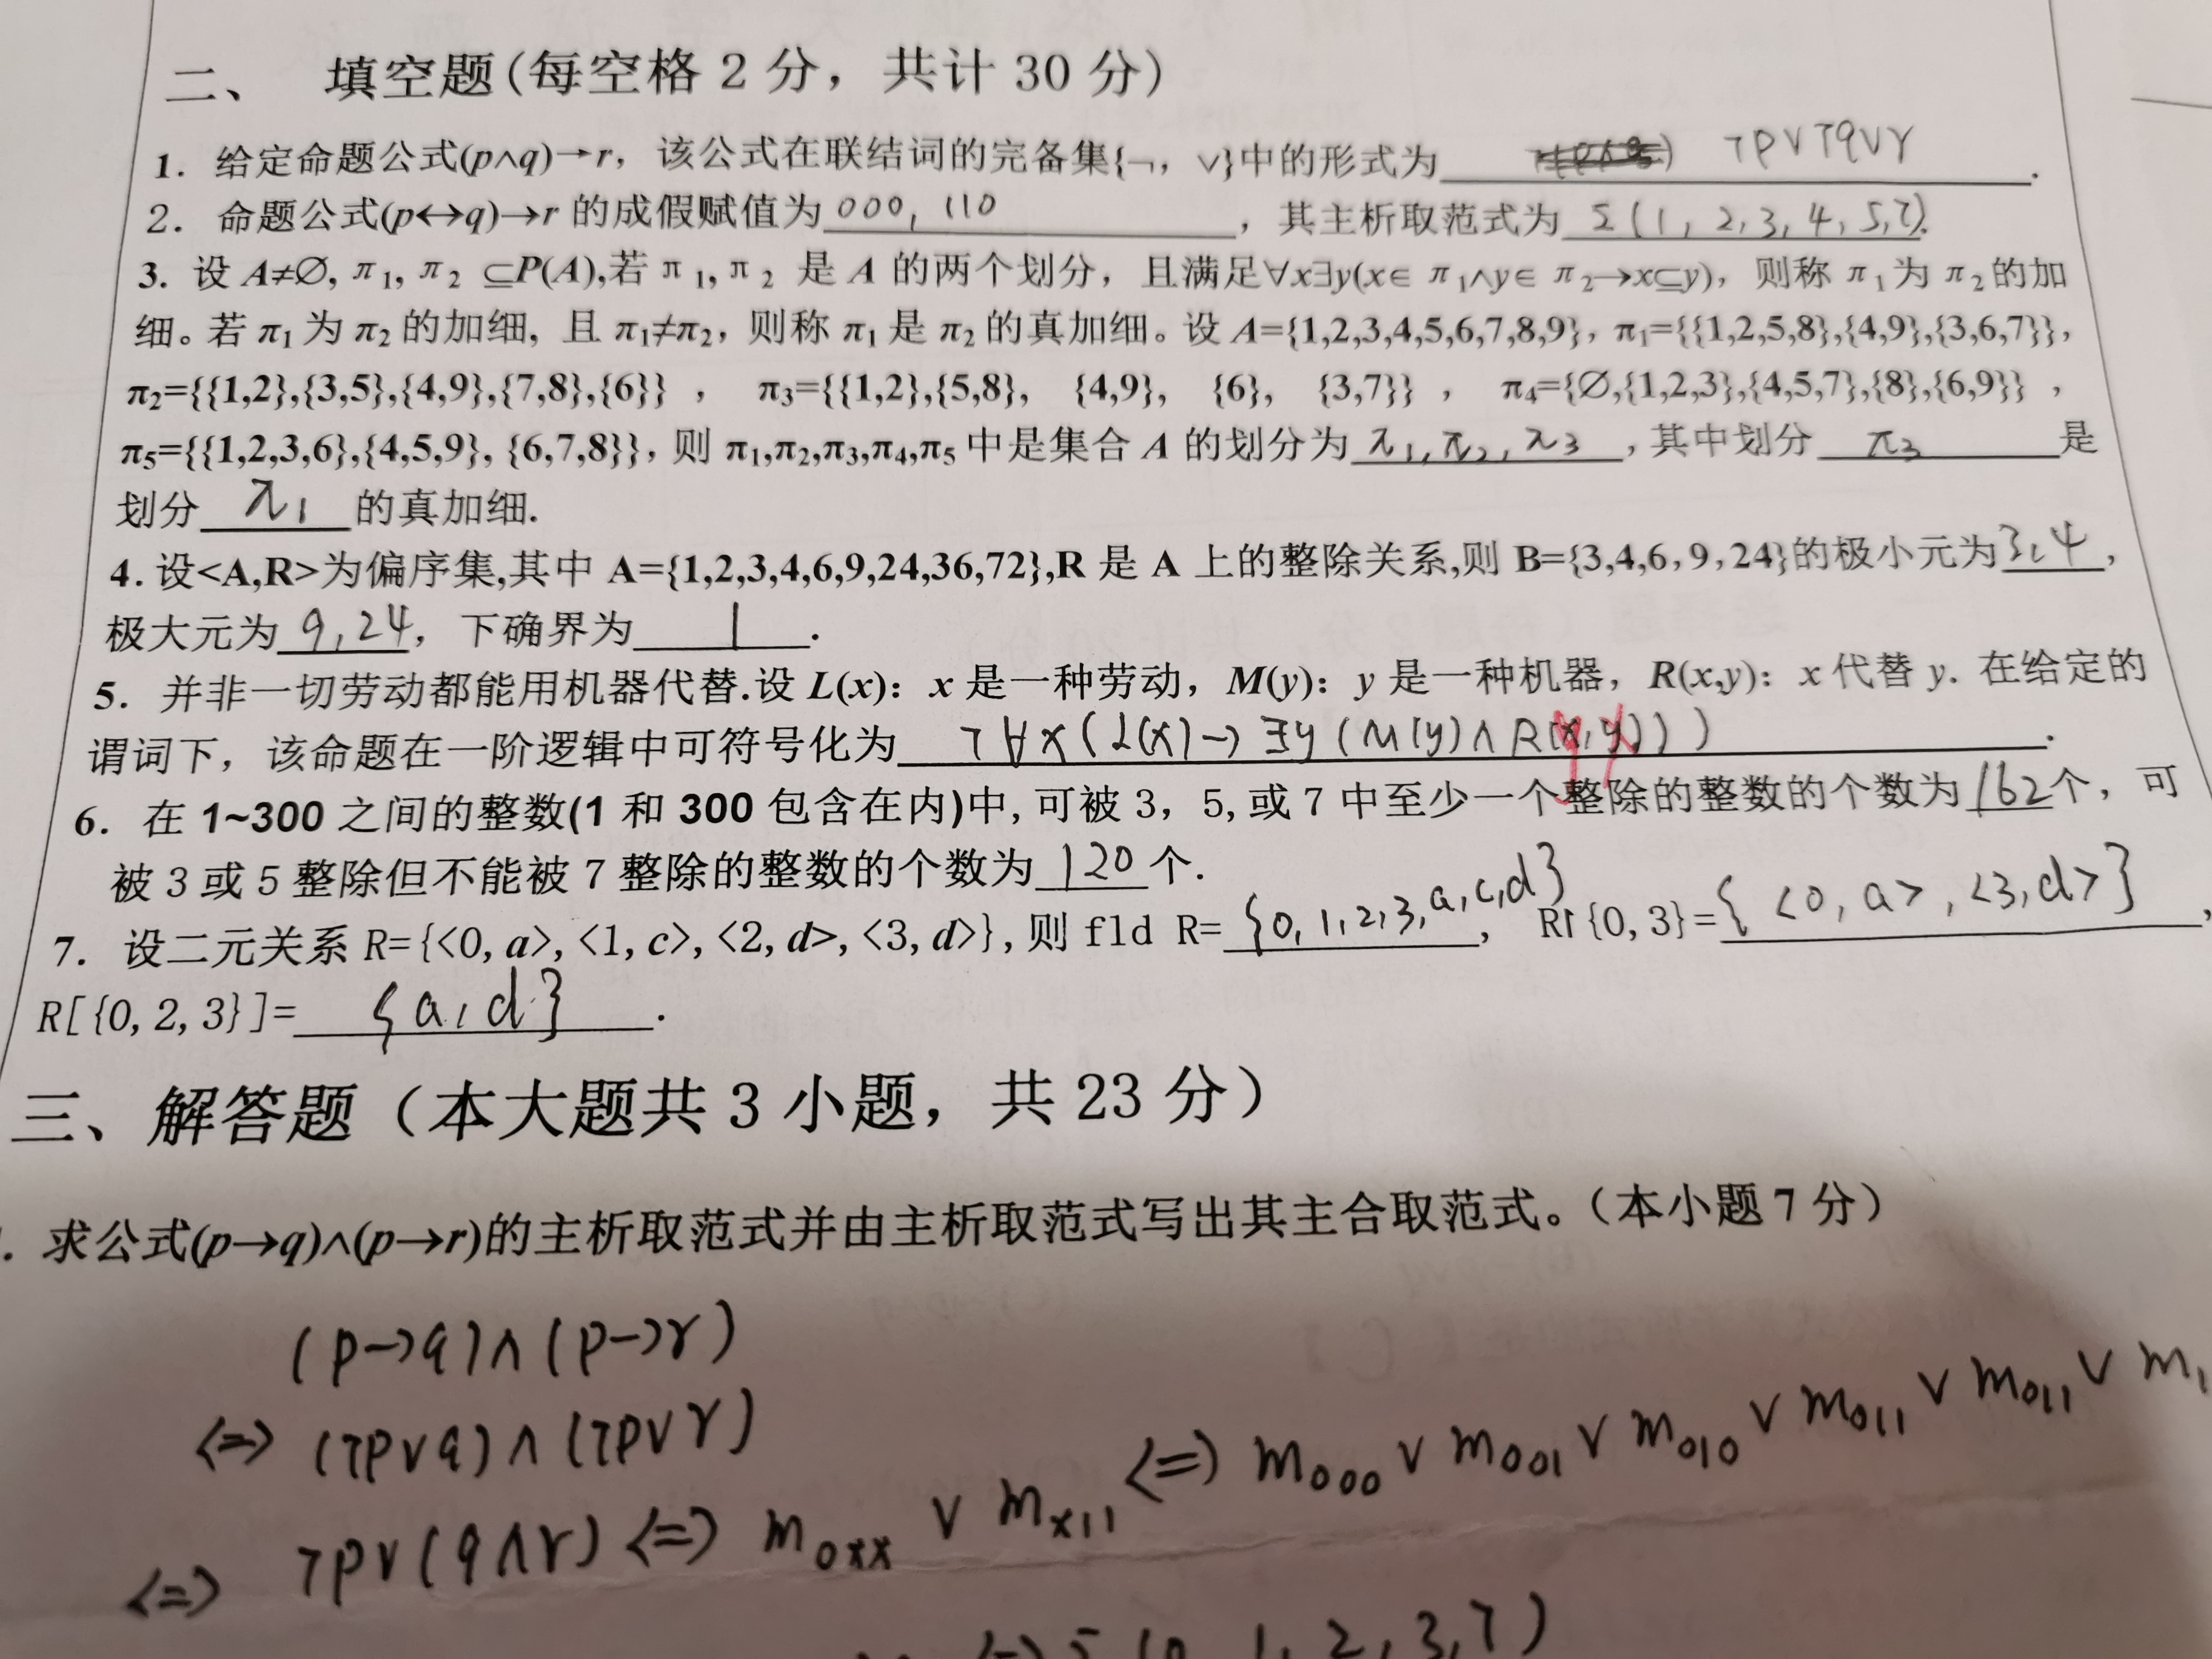 二、 填空题(每空格 2 分，共计 30 分)
1. 给定命题公式(p∧q)→r，该公式在联结词的完备集{¬，∨}中的形式为 ¬p∨¬q∨r .
2. 命题公式(p↔q)→r 的成假赋值为 000, 110 ，其主析取范式为 Σ(1, 2, 3, 4, 5, 7).
3. 设 A≠∅, π1, π2 ⊆P(A),若 π1, π2 是 A 的两个划分，且满足∀x∃y(x∈ π1∧y∈ π2→x⊆y)，则称 π1为 π2的加
细。若 π1 为 π2 的加细, 且 π1≠π2，则称 π1 是 π2 的真加细。设 A={1,2,3,4,5,6,7,8,9}，π1={{1,2,5,8},{4,9},{3,6,7}}，
π2={{1,2},{3,5},{4,9},{7,8},{6}} ， π3={{1,2},{5,8}, {4,9}, {6}, {3,7}} ， π4={∅,{1,2,3},{4,5,7},{8},{6,9}} ，
π5={{1,2,3,6},{4,5,9}, {6,7,8}}，则 π1,π2,π3,π4,π5 中是集合 A 的划分为 π1, π2, π3 ，其中划分 π3 是
划分 π1 的真加细.
4. 设<A,R>为偏序集,其中 A={1,2,3,4,6,9,24,36,72},R 是 A 上的整除关系,则 B={3,4,6,9,24}的极小元为 3, 4 ，
极大元为 9, 24 ，下确界为 1 .
5. 并非一切劳动都能用机器代替.设 L(x)：x 是一种劳动，M(y)：y 是一种机器，R(x,y)：x 代替 y. 在给定的
谓词下，该命题在一阶逻辑中可符号化为 ¬∀x(L(x)→∃y(M(y)∧R( .
6. 在 1~300 之间的整数(1 和 300 包含在内)中, 可被 3，5, 或 7 中至少一个整除的整数的个数为 162 个，可
被 3 或 5 整除但不能被 7 整除的整数的个数为 120 个.
7. 设二元关系 R={<0, a>, <1, c>, <2, d>, <3, d>}, 则 fld R= {0, 1, 2, 3, a, c, d} ， R↾{0, 3}= {<0, a>, <3, d>} ，
R[{0, 2, 3}]= {a, d} .
三、解答题（本大题共 3 小题，共 23 分）
. 求公式(p→q)∧(p→r)的主析取范式并由主析取范式写出其主合取范式。（本小题 7 分）
(p→q)∧(p→r)
<=> (¬p∨q)∧(¬p∨r)
<=> ¬p∨(q∧r) <=> m0xx ∨ mx11 <=> m000 ∨ m001 ∨ m010 ∨ m011 ∨ m011 ∨ m1
<=> Σ(0, 1, 2, 3, 7)